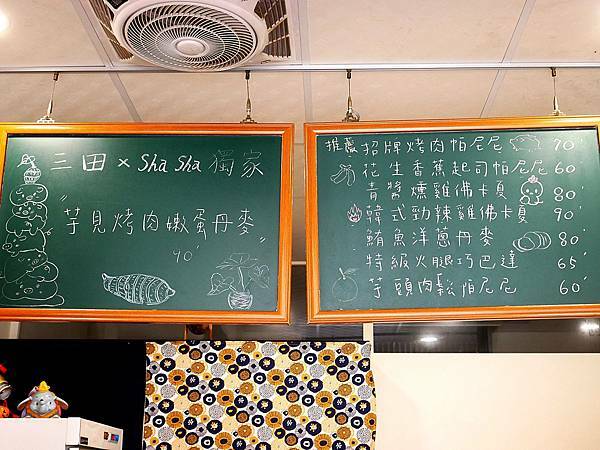 三田 × Sha Sha 獨家
"芋見烤肉嫩蛋丹麥"
90
推薦 招牌烤肉帕尼尼 70'
花生香蕉起司帕尼尼 60
青醬燻雞佛卡夏 80'
韓式勁辣雞佛卡夏 90'
鮪魚洋蔥丹麥 80'
特級火腿巧巴達 65'
芋頭肉鬆帕尼尼 60'